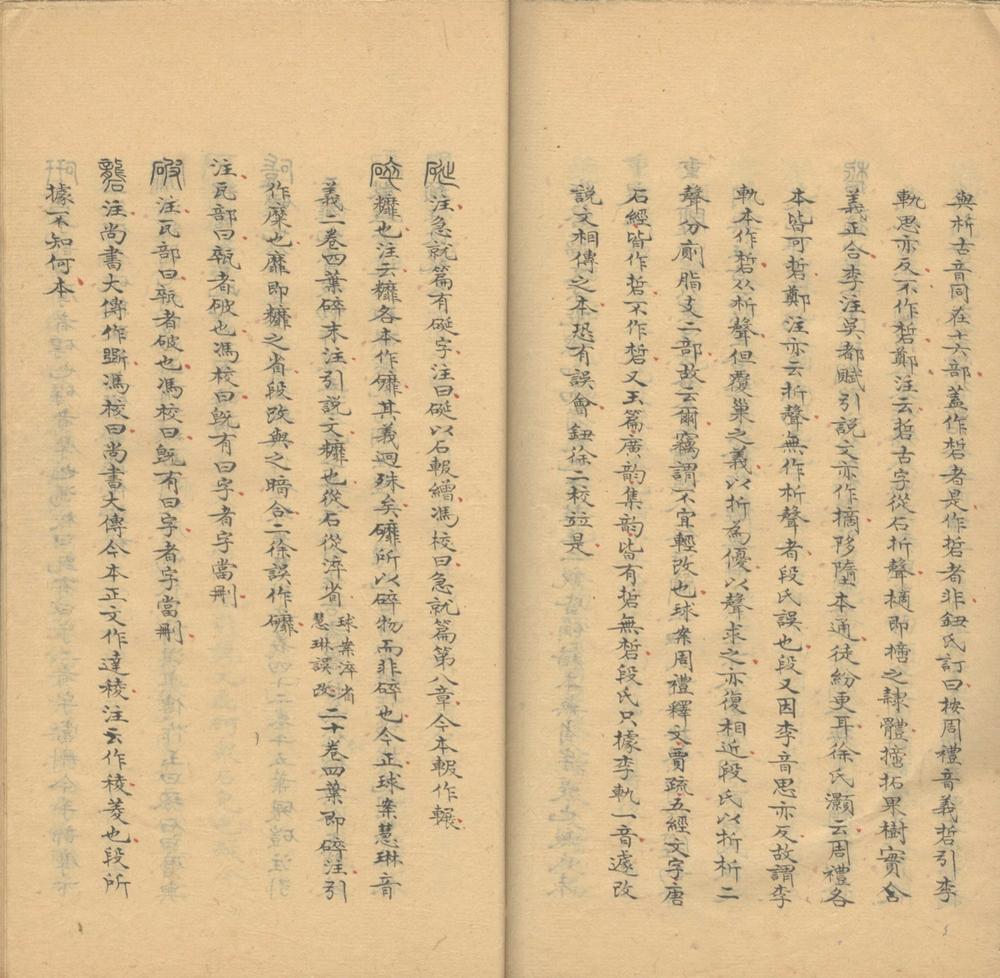 與析古音同在十六部蓋作晳者是作哲者非鈕氏訂曰按周禮音義硩引李
軌思亦反不作晳鄭注云硩古字從石折聲摘即擿之隷體擿拓果樹實合
義正合李注吳都賦引説文亦作摘陊墮本通徒紛更耳徐氏灝云周禮各
本皆硩鄭注亦云折聲無作析聲者段氏誤也段又因李音思亦反故謂李
軌本作硩从析聲但覆巢之義以折為優以聲求之亦復相近段氏以折析二
聲分廁脂支二部故云爾竊謂不宜輕改也球案周禮釋文賈疏五經文字唐
石經皆作硩不作晳又玉篇廣韵集韵皆有硩無晳段氏只據李軌一音遽改
説文相傳之本恐有誤會鈕徐二校竝是
硟注急就篇有硟字注曰硟以石輾繒馮校曰急就篇第八章今本輾作輾
碎䊳也注云䊳各本作䃺其義迥殊矣䃺所以碎物而非碎也今正球案慧琳音
義二卷四葉碎末注引説文䊳也從石從淬省球案淬省慧琳誤改二十卷四葉即碎注引
作糜也靡即䊳之省段改與之暗合二徐誤作䃺
注瓦部曰瓻者破也馮校曰既有曰字者字當刪
破注瓦部曰瓻者破也馮校曰既有曰字者字當刪
礱注尚書大傳作斲馮校曰尚書大傳今本正文作達稜注云作稜菱也段所
據不知何本